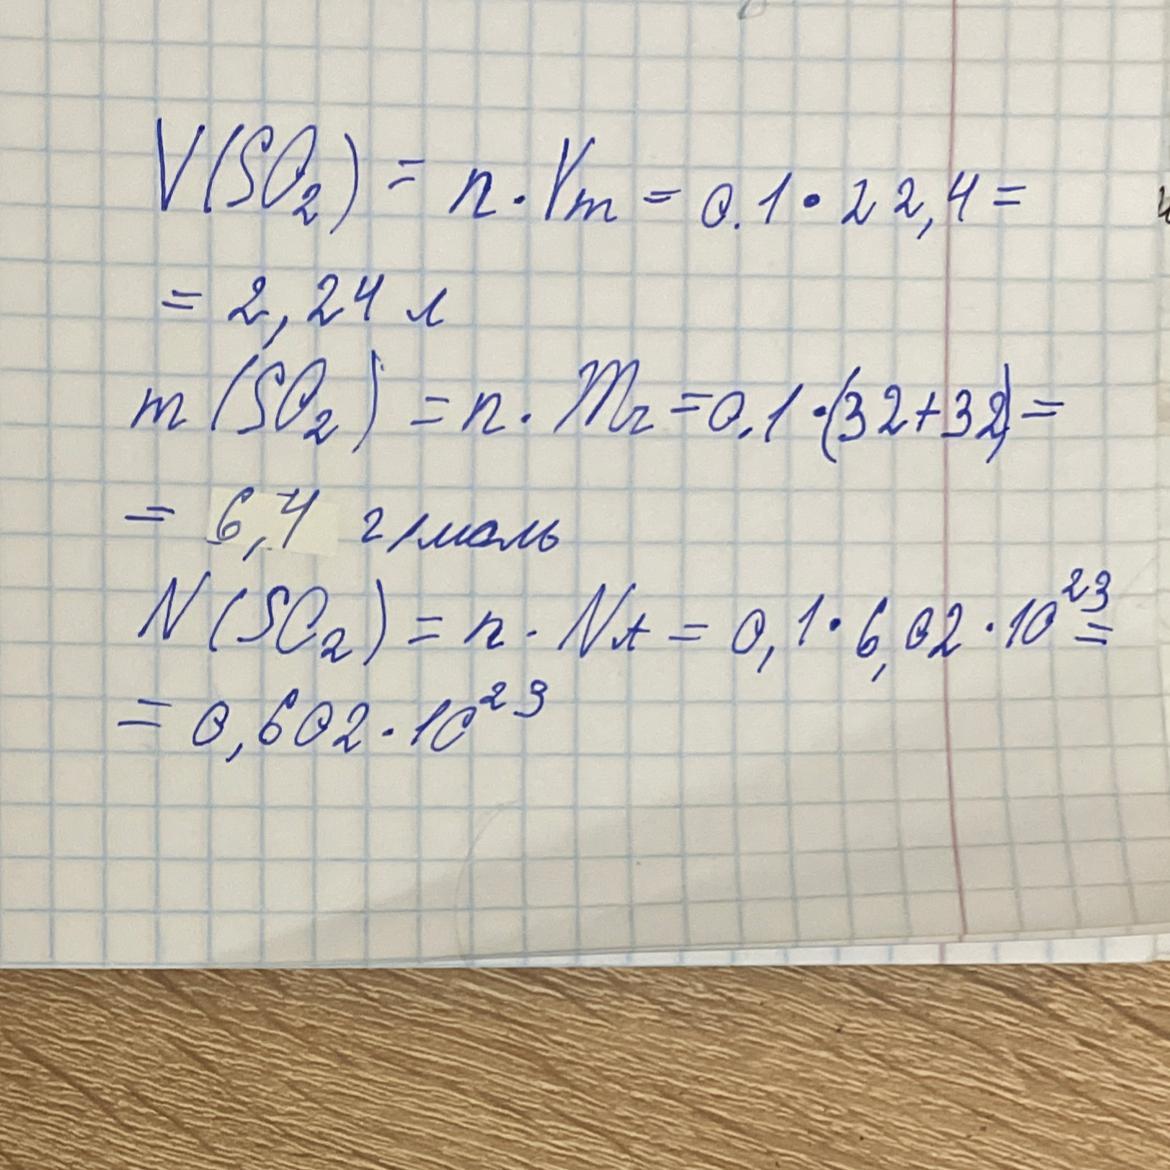 V(SO₂) = n · Vm = 0.1 · 22,4 =
= 2,24 л
m (SO₂) = n · Mr = 0.1 · (32+32) =
= 6,4 г/моль
N (SO₂) = n · NA = 0,1 · 6,02 · 10²³ =
= 0,602 · 10²³